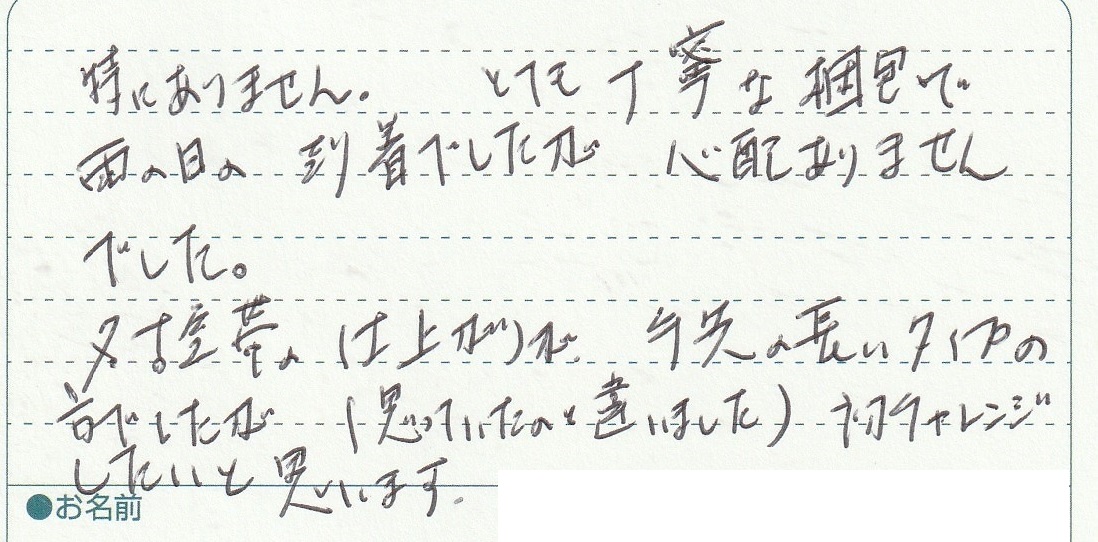 特にありません。 とても丁寧な梱包で
雨の日の 到着でしたが 心配ありません
でした。
名古屋帯の 仕上がりが、手先の長いタイプの
でしたが (思っていたのと違いました) 初チャレンジ
したいと思います。
●お名前